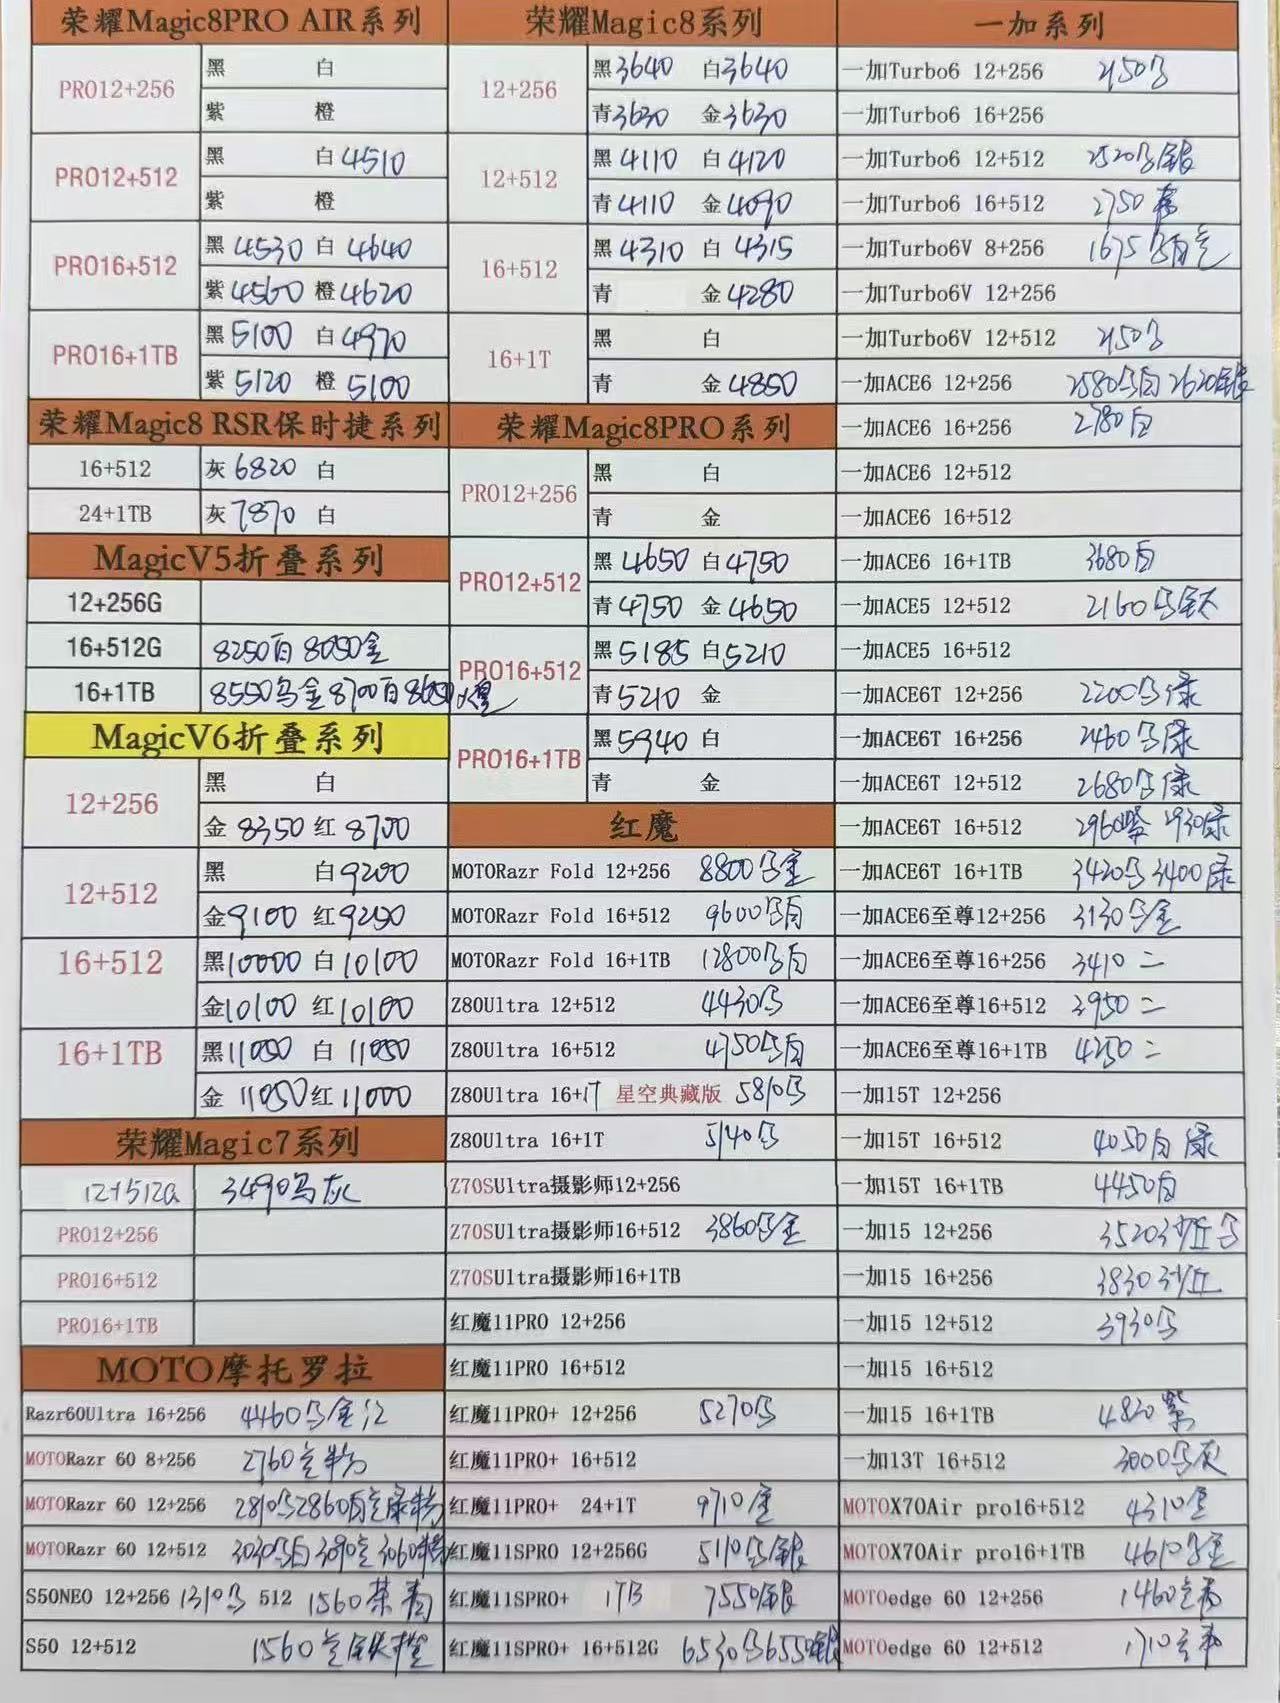 荣耀Magic8PRO AIR系列
PRO12+256
黑 白
紫 橙
PRO12+512
黑 白4510
紫 橙
PRO16+512
黑4530 白4640
紫4560 橙4620
PRO16+1TB
黑5100 白4970
紫5120 橙5100
荣耀Magic8 RSR保时捷系列
16+512 灰6820 白
24+1TB 灰7870 白
MagicV5折叠系列
12+256G
16+512G 8250白 8050金
16+1TB 8550乌金8700白
MagicV6折叠系列
12+256
黑 白
金8350 红8700
12+512
黑 白9200
金9100 红9250
16+512
黑10000 白10100
金10100 红10100
16+1TB
黑11050 白11050
金11050 红11000
荣耀Magic7系列
12+512G 3490乌灰
PRO12+256
PRO16+512
PRO16+1TB
MOTO摩托罗拉
Razr60Ultra 16+256 4460乌金江
MOTORazr 60 8+256 2760空粉
MOTORazr 60 12+256 2810乌2860白空绿粉
MOTORazr 60 12+512 3030乌白3090空3060粉
S50NEO 12+256 1310乌 512 1560茶青
S50 12+512 1560空
荣耀Magic8系列
12+256
黑3640 白3640
青3630 金3630
12+512
黑4110 白4120
青4110 金4090
16+512
黑4310 白4315
青 金4280
16+1T
黑 白
青 金4850
荣耀Magic8PRO系列
PRO12+256
黑 白
青 金
PRO12+512
黑4650 白4750
青4750 金4650
PRO16+512
黑5185 白5210
青5210 金
PRO16+1TB
黑5940 白
青 金
红魔
MOTORazr Fold 12+256 8800乌金
MOTORazr Fold 16+512 9600乌白
MOTORazr Fold 16+1TB 12800乌白
Z80Ultra 12+512 4430乌
Z80Ultra 16+512 4750乌白
Z80Ultra 16+1T 星空典藏版 5810乌
Z80Ultra 16+1T 5140乌
Z70SUltra摄影师12+256
Z70SUltra摄影师16+512 3860乌金
Z70SUltra摄影师16+1TB
红魔11PRO 12+256
红魔11PRO 16+512
红魔11PRO+ 12+256 5270乌
红魔11PRO+ 16+512
红魔11PRO+ 24+1T 9710金
红魔11SPRO 12+256G 5110乌银
红魔11SPRO+ 1TB 7550银
红魔11SPRO+ 16+512G 6530乌6550银
一加系列
一加Turbo6 12+256 2150乌
一加Turbo6 16+256
一加Turbo6 12+512 2520乌银
一加Turbo6 16+512 2750
一加Turbo6V 8+256 1675乌白空
一加Turbo6V 12+256
一加Turbo6V 12+512 2150乌
一加ACE6 12+256 2580乌白 2620银
一加ACE6 16+256 2780白
一加ACE6 12+512
一加ACE6 16+512
一加ACE6 16+1TB 3680白
一加ACE5 12+512 2160乌钛
一加ACE5 16+512
一加ACE6T 12+256 2200乌绿
一加ACE6T 16+256 2460乌绿
一加ACE6T 12+512 2680乌绿
一加ACE6T 16+512 2960紫 2930绿
一加ACE6T 16+1TB 3420乌3400绿
一加ACE6至尊12+256 3130乌金
一加ACE6至尊16+256 3410 二
一加ACE6至尊16+512 3950 二
一加ACE6至尊16+1TB 4250 二
一加15T 12+256
一加15T 16+512 4050白 绿
一加15T 16+1TB 4450白
一加15 12+256 3520沙丘乌
一加15 16+256 3830沙丘
一加15 12+512 3930乌
一加15 16+512
一加15 16+1TB 4820紫
一加13T 16+512 3000乌灰
MOTOX70Air pro16+512 4310金
MOTOX70Air pro16+1TB 4610乌金
MOTOedge 60 12+256 1460空
MOTOedge 60 12+512 1710空